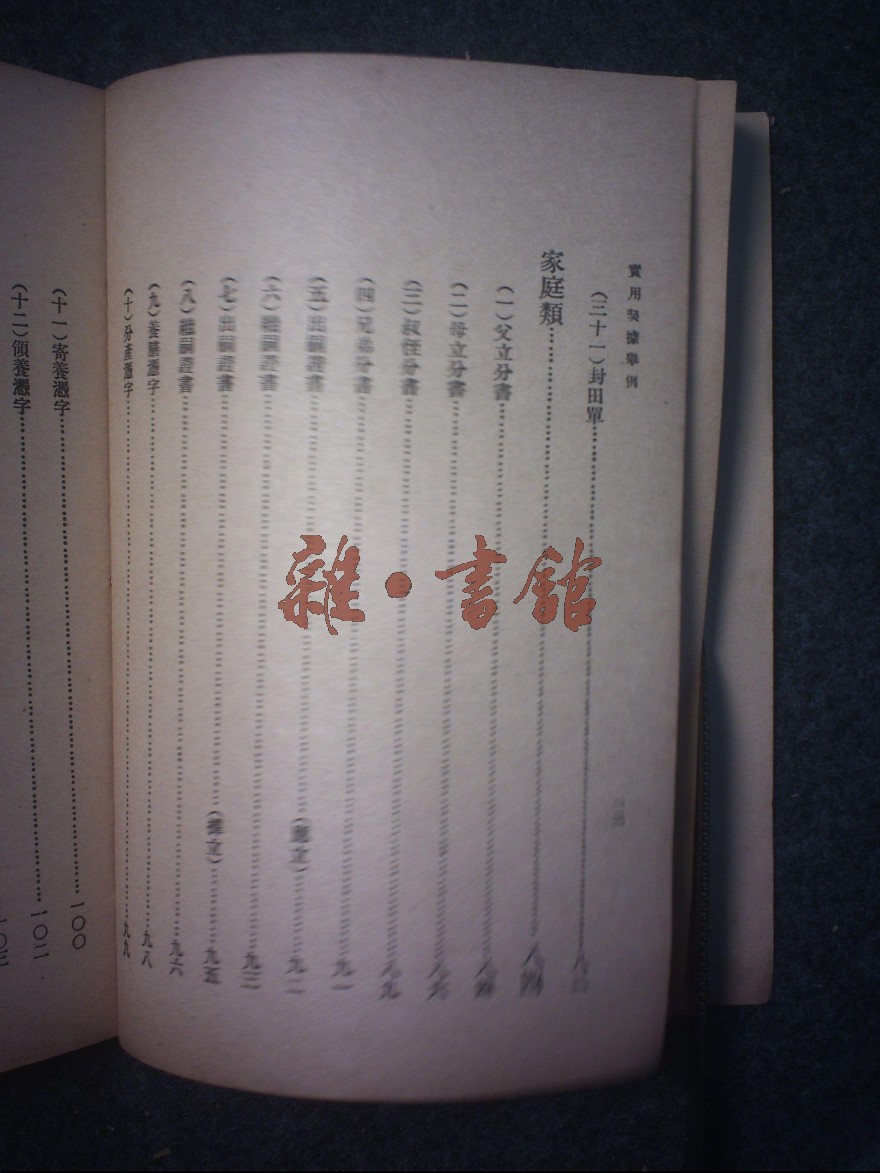 實用契據舉例
(三十一)封田單
家庭類……八四
(一)父立分書……八四
(二)母立分書……八六
(三)叔侄分書……八九
(四)兄弟分書……九一
(五)出嗣證書……(應立)……九二
(六)繼嗣證書……九三
(七)出嗣證書……(擇立)……九五
(八)繼嗣證書……九六
(九)養膳憑字……九八
(十)分產憑字……九九
(十一)寄養憑字……一〇〇
(十二)領養憑字……一〇二
雜·書館